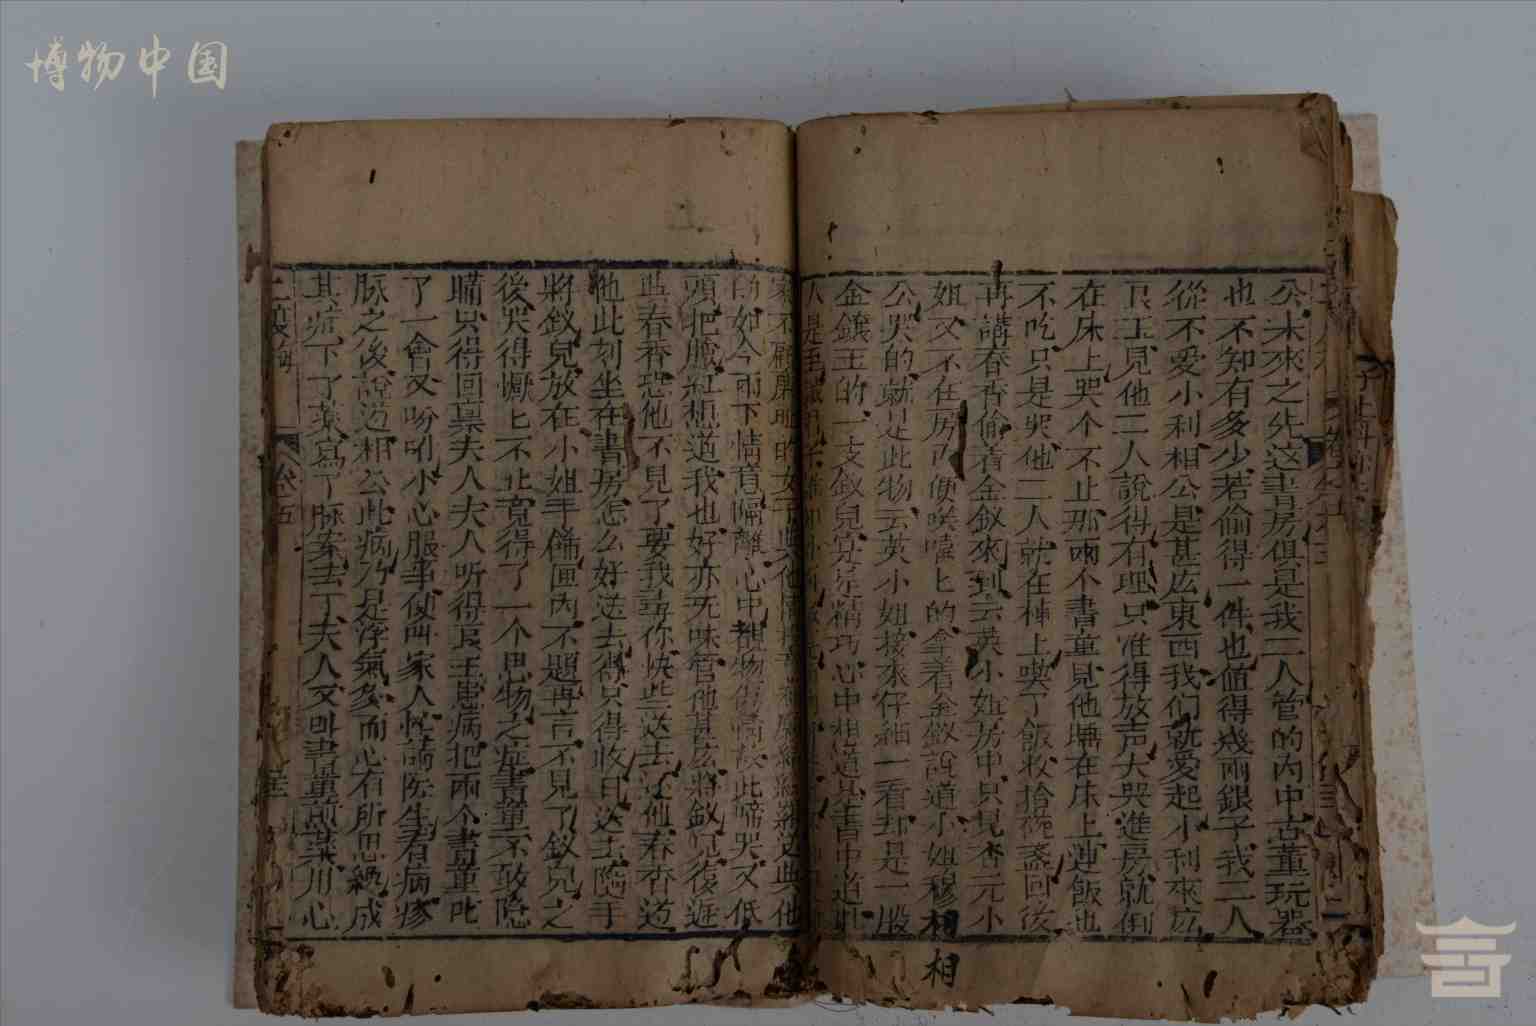 博物中国
公未來之先这書房俱是我二人管的内中古董玩器
也不知有多少若偷得一件也值得幾兩銀子我二人
從不愛小利相公是甚広東西我们就愛起小利來広
良玉見他二人說得有理只准得放声大哭進房就倒
在床上哭个不止那兩个書童見他壖在床上連飯也
不吃只是哭他二人就在神上喫了飯收拾碗盞回後
再講春香偷着金釵來到云英小姐房中只見杏元小
姐又不在房内便咲嘻匕的拿着金釵說道小姐穆相
公哭的就是此物云英小姐接來仔細一看却是一股
金鑲玉的一支釵兒算是精巧心中相道
家不顧廉耻的女子
如今兩下情意隔離心中視物傷情故此啼哭又低
頭把臉紅想道我也好亦无味管他甚庅將釵兒復遞
與春香恐他不見了要我尋你快些送去还他春香道
他此刻坐在書房怎么好送去得只得收回送去隨手
將釵兒放在小姐手饰匣内不題再言不見了釵兒之
後哭得懨匕不止竟得了一个思物之症書童不敢隐
瞞只得回稟夫人夫人听得良玉患病把兩个書童叱
了一會又吩咐小心服事便叫家人忙請医生看病疹
脉之後說道相公此病乃是浮氣多而心有所思終成
其症下了藥寫了脉案去了夫人又叫書童煎藥川心
二度梅
卷五
相